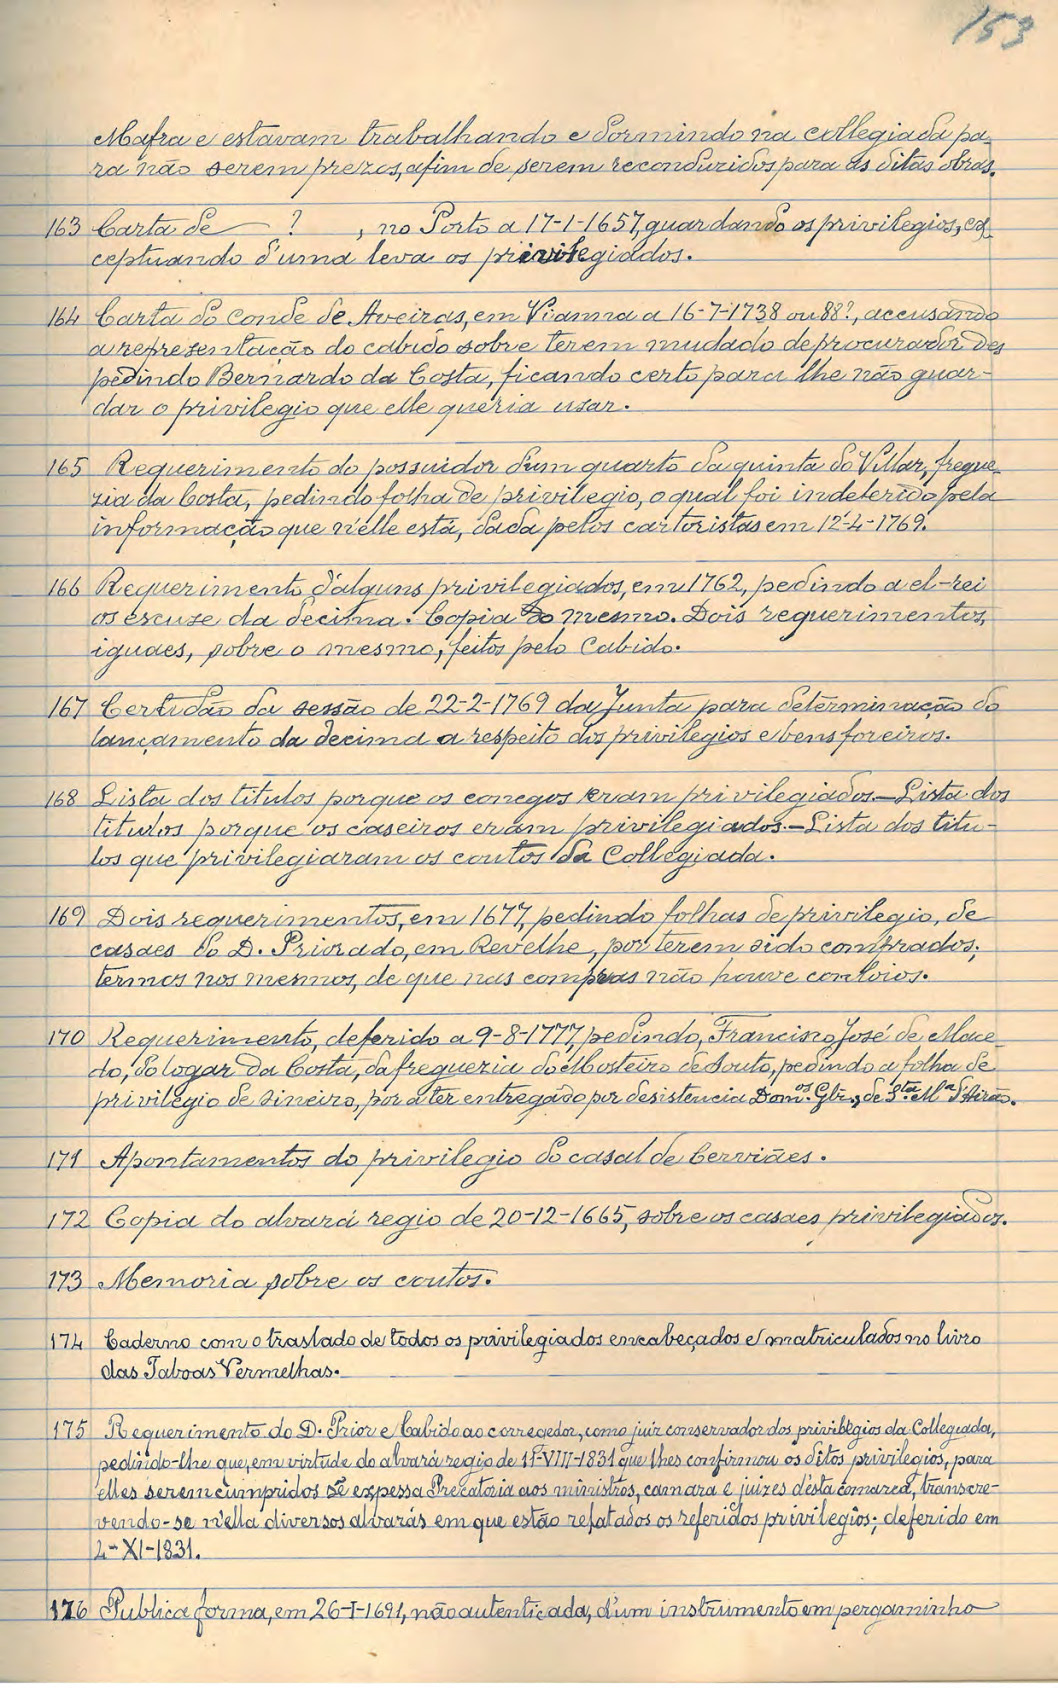 153
Mafra e estavam trabalhando e dormindo na collegiada pa-
ra não serem prezos, afim de serem reconduzidos para as ditas obras.
163 Carta de ? , no Porto a 17-1-1657, guardando os privilegios, ex-
ceptuando d'uma leva os privilegiados.
164 Carta do conde de Aveiras, em Vianna a 16-7-1738 ou 88?, accusando
a representação do cabido sobre terem mudado de procurador des
pedindo Bernardo da Costa, ficando certo para lhe não guar-
dar o privilegio que elle queria usar.
165 Requerimento do possuidor dum quarto da quinta do Villar, fregue-
zia da Costa, pedindo folha de privilegio, o qual foi indeferido pela
informação que n'elle está, dada pelos cartoristas em 12-4-1769.
166 Requerimento d'alguns privilegiados, em 1762, pedindo a el-rei
os escuse da decima. Copia do mesmo. Dois requerimentos,
iguaes, sobre o mesmo, feitos pelo Cabido.
167 Certidão da sessão de 22-2-1769 da Junta para determinação do
lançamento da decima a respeito dos privilegios e bens foreiros.
168 Lista dos titulos porque os conegos eram privilegiados.—Lista dos
titulos porque os caseiros eram privilegiados.—Lista dos titu-
los que privilegiaram os coutos da Collegiada.
169 Dois requerimentos, em 1677, pedindo folhas de privilegio, de
casaes do D. Priorado, em Revelhe, por terem sido comprados;
termos nos mesmos, de que nas compras não houve conloios.
170 Requerimento, deferido a 9-8-1777, pedindo, Francisco José de Mace-
do, do logar da Costa, da freguezia do Mosteiro de Souto, pedindo a folha de
privilegio de dineiro, por a ter entregado por desistencia Dom.os Glz., de S.ta M.a d'Airão.
171 Apontamentos do privilegio do casal de Cerviães.
172 Copia do alvará regio de 20-12-1665, sobre os casaes privilegiados.
173 Memoria sobre os coutos.
174 Caderno com o traslado de todos os privilegiados encabeçados e matriculados no livro
das Taboas Vermelhas.
175 Requerimento do D. Prior e Cabido ao corregedor, como juiz conservador dos privilegios da Collegiada,
pedindo-lhe que, em virtude do alvará regio de 11-VIII-1831 que lhes confirmou os ditos privilegios, para
elles serem cumpridos se expessa Precatoria aos ministros, camara e juizes d'esta comarca, transcre-
vendo-se n'ella diversos alvarás em que estão relatados os referidos privilegios; deferido em
4-XI-1831.
176 Publica forma, em 26-I-1691, não autenticada, d'um instrumento em pergaminho